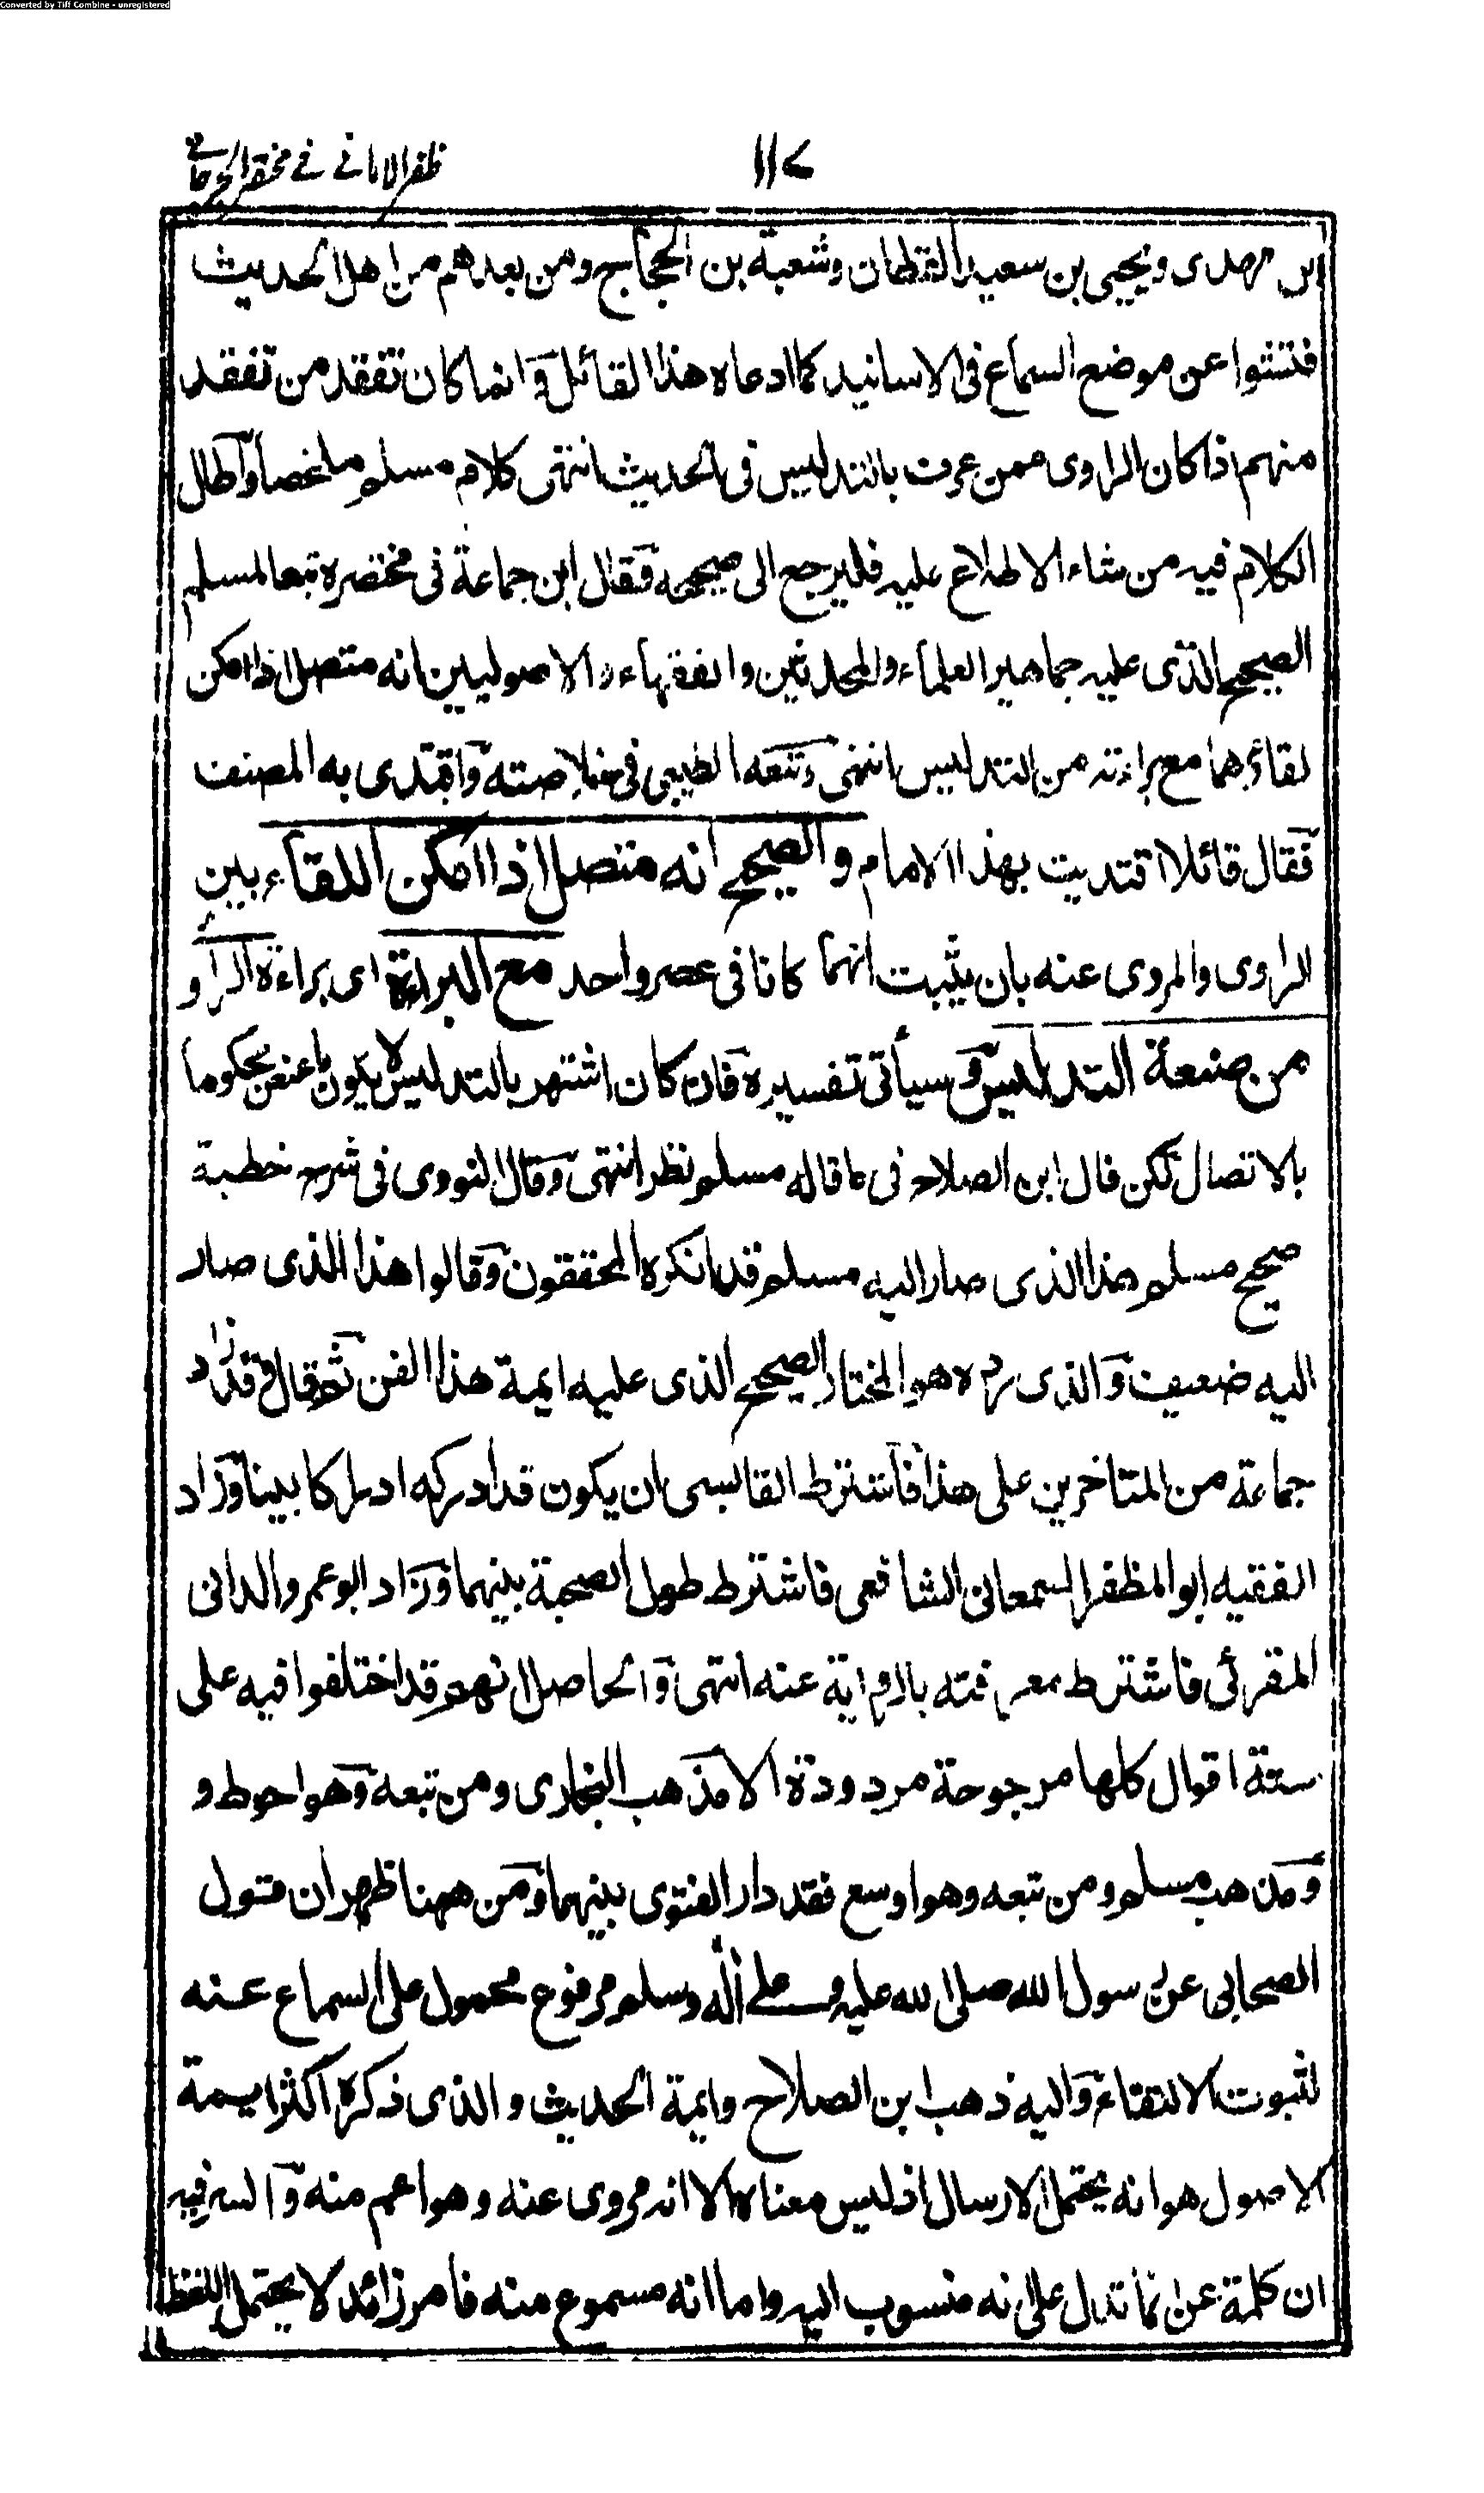 Converted by Tiff Combine - unregistered
ظفر الامانے فے مختصر الجرجانے
١١٧
ابن مهدى ويحيى بن سعيد القطان وشعبة بن الحجاج ومن بعدهم من اهل الحديث
فتشوا عن موضع السماع فى الاسانيد كما ادعاه هذا القائل وانما كان تفقد من تفقد
منهم اذا كان الراوى ممن عرف بالتدليس فى الحديث انتهى كلام مسلم ملخصا واطال
الكلام فيه من شاء الاطلاع عليه فليرجع الى صحيحه فقال ابن جماعة فى مختصره تبعا لمسلم
الصحيح الذى عليه جماهير العلماء والمحدثين والفقهاء والاصوليين انه متصل اذا امكن
لقاؤهما مع براءته من التدليس انتهى وتبعه الطيبى فى خلاصته واقتدى به المصنف
فقال قائلا اقتديت بهذا الامام والصحيح انه متصل اذا امكن اللقاء بين
الراوى والمروى عنه بان يثبت انهما كانا فى عصر واحد مع البراءة اى براءة الراو
من صنعة التدليس وسيأتى تفسيره فان كان اشتهر بالتدليس لا يكون ما عنعن محكوما
بالاتصال لكن قال ابن الصلاح فى ما قاله مسلم نظر انتهى وقال النووى فى شرح خطبة
صحيح مسلم هذا الذى صار اليه مسلم قد انكره المحققون وقالوا هذا الذى صار
اليه ضعيف والذى رده هو المختار الصحيح الذى عليه ايمة هذا الفن ثم قال وقد زاد
جماعة من المتاخرين على هذا فاشترط القابسى ان يكون قد ادركه ادراكا بينا وزاد
الفقيه ابو المظفر السمعانى الشافعى فاشترط طول الصحبة بينهما وزاد ابو عمرو الدانى
المقرئى فاشترط معرفته بالرواية عنه انتهى والحاصل انهم قد اختلفوا فيه على
ستة اقوال كلها مرجوحة مردودة الا مذهب البخارى ومن تبعه وهو احوط و
ومذهب مسلم ومن تبعه وهو اوسع فقد دار الفتوى بينهما ومن ههنا ظهر ان قول
الصحابى عن رسول الله صلى الله عليه وعلے آله وسلم مرفوع محمول على السماع عنه
لثبوت الالتقاء واليه ذهب ابن الصلاح وايمة الحديث والذى ذكره اكثر ايمة
الاصول هو انه يحتمل الارسال اذ ليس معناه الا انه مروى عنه وهو اعم منه والسر فيه
ان كلمة عن انما تدل على انه منسوب اليه واما انه مسموع منه فامر زائد لا يحتمل اللفظ